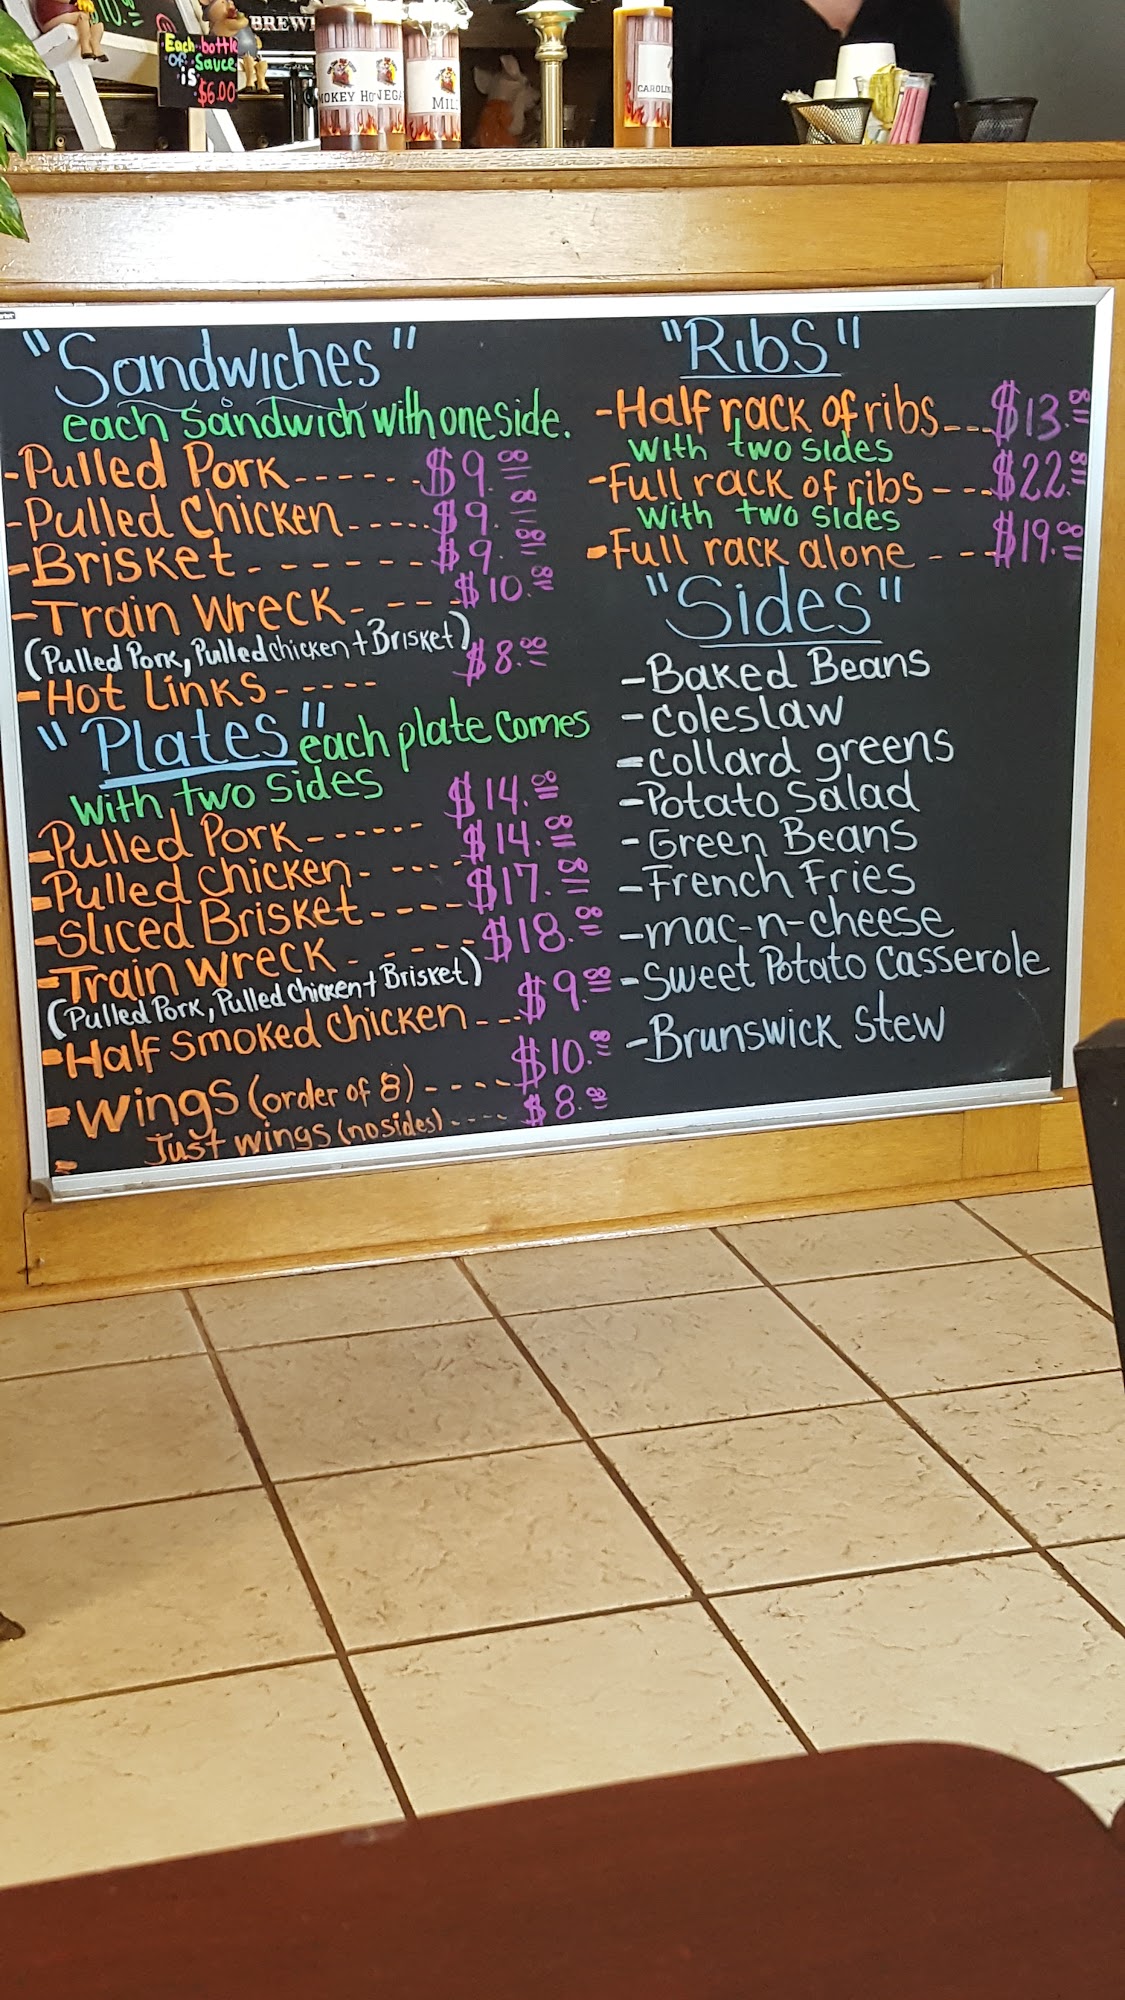 BREW
Each bottle
of Sauce
is
$6.00
MIL
"Sandwiches"
each sandwich with one side.
-Pulled Pork------$9.00
-Pulled Chicken-----$9.00
-Brisket-------$9.00
-Train Wreck----$10.00
(Pulled Pork, Pulled chicken + Brisket)
-Hot Links-----$8.00
"Plates" each plate comes
with two sides
-Pulled Pork------$14.00
-Pulled chicken----$14.00
-Sliced Brisket----$17.00
-Train wreck----$18.00
(Pulled Pork, Pulled Chicken + Brisket)
-Half smoked chicken---$9.00
-Wings (order of 8)----$10.00
- Just wings (no sides)----$8.00
"Ribs"
-Half rack of ribs---$13.00
with two sides
-Full rack of ribs---$22.00
with two sides
-Full rack alone---$19.00
"Sides"
-Baked Beans
-Coleslaw
-collard greens
-Potato Salad
-Green Beans
-French Fries
-mac-n-cheese
-Sweet Potato Casserole
-Brunswick Stew